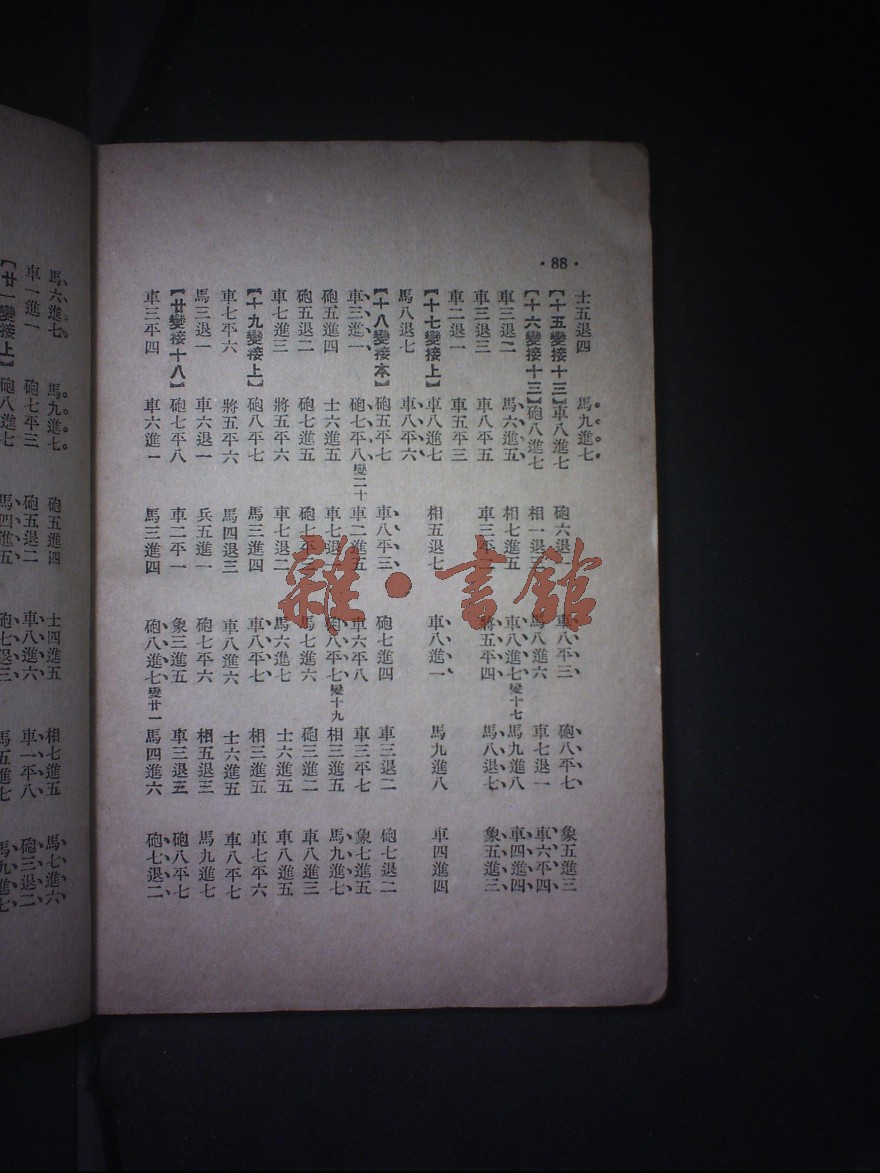 ·88·
士五退四 馬九進七
【十五變接十三】車八進七 砲六退一 車八平三 砲八平七 象五進三
【十六變接十三】砲八進七 相一退三 馬八進六 車七退一 車六平四
車三退二 馬六進五 相七進五 車八進七變十七 馬九進八 車四進四
車三退三 車八平五 車三平二 將五平四 馬八退七 象五進三
車二退一 車五平三
【十七變接上】車八進七 相五退七 車八進一 馬九進八 車四進四
馬八退七 車八平六
【十八變接本】砲五平七 車八平三 砲七進四 車三退二 砲七退二
車三進一 砲七平八變二十 車二進五 車六平八 車三平七 象七進五
砲五進四 士六進五 車七退 砲八平七變十九 相三進五 馬九進七
砲五退二 砲七進五 砲七平 馬七進六 砲三進二 車八進三
車七進三 將五平六 車七退二 馬六進七 士六進五 車八進五
【十九變接上】砲八平七 馬三進四 車八平七 相三進五 車七平六
車七平六 將五平六 馬四退三 車八進六 士六進五 車八平七
馬三退一 車六退一 兵五進一 砲七平六 相五退三 馬九進七
【廿變接十八】砲七平八 車二平一 象三進五 車三退三 砲八平七
車三平四 車六進一 馬三進四 砲八進七變廿一 馬四進六 砲七退二
馬六進七 馬九進七 砲五進四 士四進五 相七進五 馬七進六
車一進一 砲七平三 砲五退二 車八進六 車一平八 砲三退二
【廿一變接上】砲八進七 馬四進五 砲七退三 馬五進七 馬九進七
雜·書館